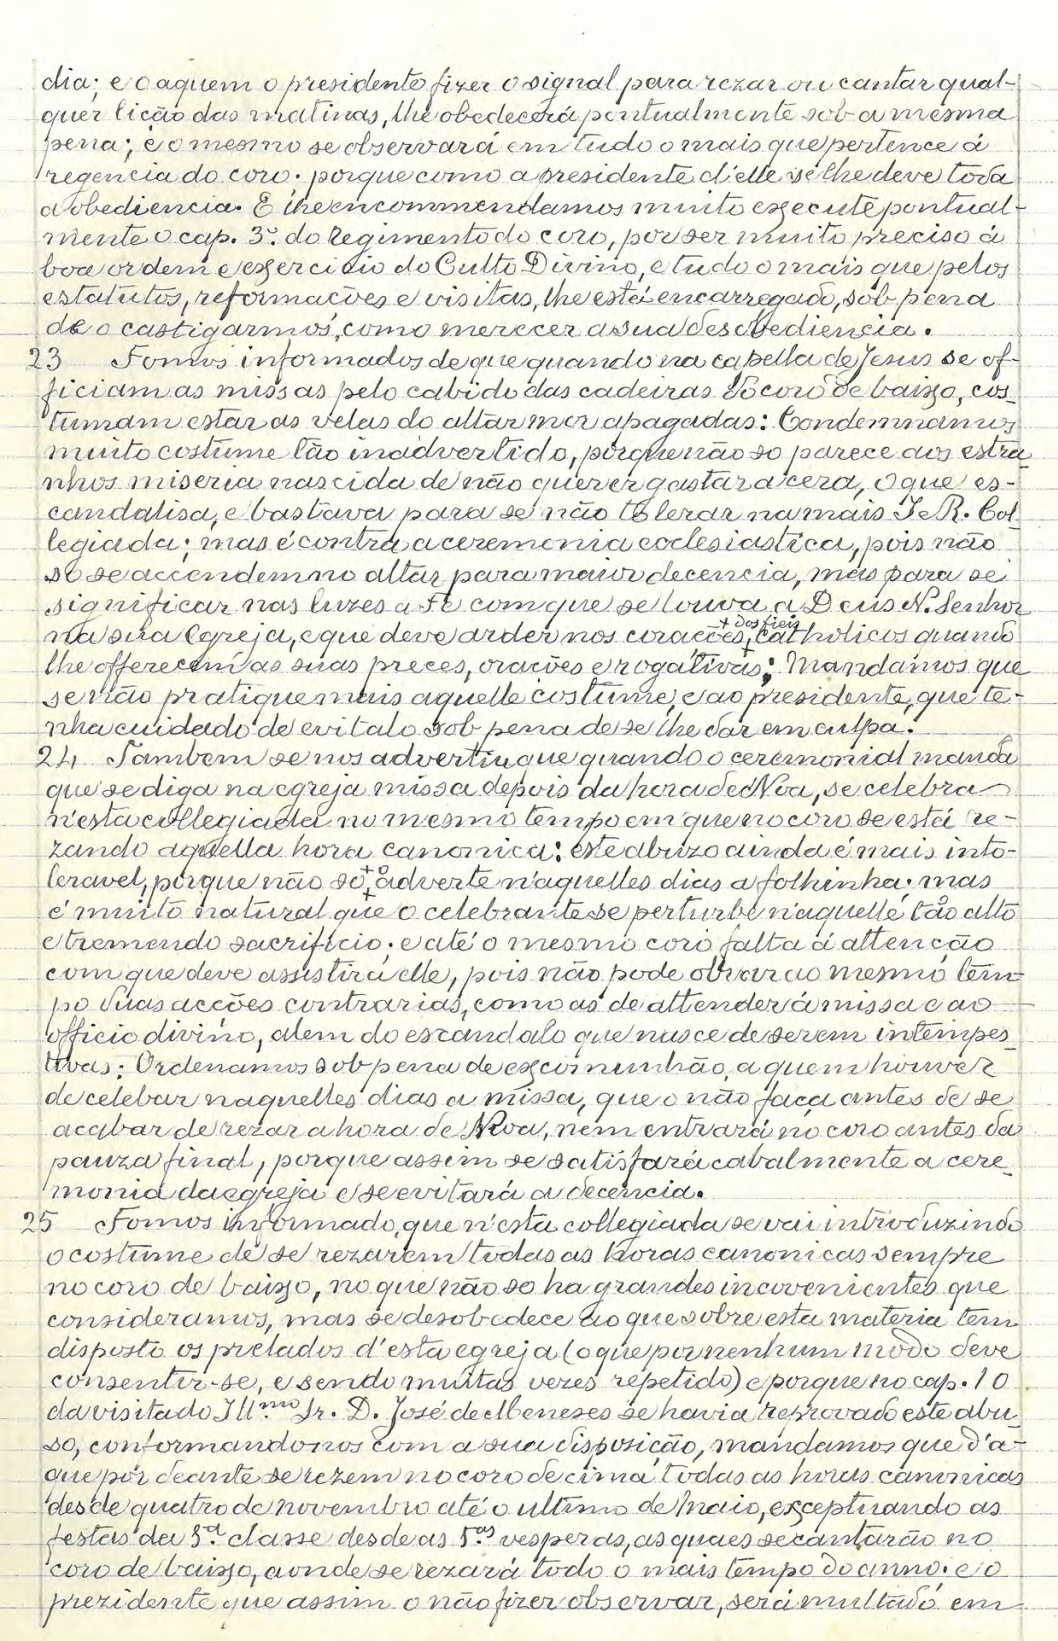 dia; e o aquem o presidente fizer o signal para rezar ou cantar qual-
quer lição das matinas, lhe obedecerá pontualmente sob a mesma
pena; e o mesmo se observará em tudo o mais que pertence á
regencia do coro; porque como a presidente d'elle se lhe deve toda
a obediencia. E lhe encommendamos muito execute pontual-
mente o cap. 3º. do Regimento do coro, por ser muito preciso á
boa ordem e exercicio do Culto Divino, e tudo o mais que pelos
estatutos, reformacões e visitas, lhe está encarregado, sob pena
de o castigarmos, como merecer a sua desobediencia.
23 Fomos informados de que quando na capella de Jesus se of-
ficiam as missas pelo cabido das cadeiras do coro de baixo, cos-
tumam estar as velas do altar mor apagadas: Condemnamos
muito costume tão inadvertido, porque não so parece aos estra
nhos miseria nascida de não querer gastar a cera, o que es-
candalisa, e bastava para se não tolerar na mais I. e R. Col-
legiada; mas é contra a ceremonia ecclesiastica, pois não
só se accendem no altar para maior decencia, mas para se
significar nas luzes a Fé com que se louva a Deus N. Senhor
na sua Egreja, e que deve arder nos coracões + dos fieis + catholicos quando
lhe offerecem as suas preces, orações e rogativas; Mandamos que
se não pratique mais aquelle costume, e ao presidente, que te-
nha cuidado de evitalo sob pena de se lhe dar em culpa.
24 Tambem se nos advertiu que quando o ceremonial manda
que se diga na egreja missa depois da hora de Noa, se celebra
n'esta collegiada no mesmo tempo em que no coro se está re-
zando aquella hora canonica: este abuzo ainda é mais into-
leravel, porque não só + o + adverte n'aquelles dias a folhinha; mas
é muito natural que o celebrante se perturbe n'aquelle tão alto
e tremendo sacrificio; e até o mesmo coro falta á attenção
com que deve assistir á elle, pois não pode obrar ao mesmo tem-
po duas acções contrarias, como as de attender á missa e ao
officio divino, alem do escandalo que nasce de serem intempes-
tivas: Ordenamos sob pena de excomunhão, a quem houver
de celebar naquelles dias a missa, que o não faça antes de se
acabar de rezar a hora de Noa, nem entrará no coro antes da
pauza final, porque assim se satisfará cabalmente a cere-
monia da egreja e se evitará a decencia.
25 Fomos informado, que n'esta collegiada se vai introduzindo
o costume de se rezarem todas as horas canonicas sempre
no coro de baixo, no que não so ha grandes incovenientes que
consideramos, mas se desobedece ao que sobre esta materia tem
disposto os prelados d'esta egreja (o que por nenhum modo deve
consentir-se, e sendo muitas vezes repetido) e porque no cap. 10
da visita do Illmo Sr. D. José de Meneses se havia reprovado este abu-
so, conformandonos com a sua disposição, mandamos que d'a-
que por deante se rezem no coro de cima todas as horas canonicas
desde quatro de novembro até o ultimo de Maio, exceptuando as
festas da 3ª. classe desde as 1as. vesperas, as quaes se cantarão no
coro de baixo, aonde se rezará todo o mais tempo do anno; e o
prezidente que assim o não fizer observar, será multado em